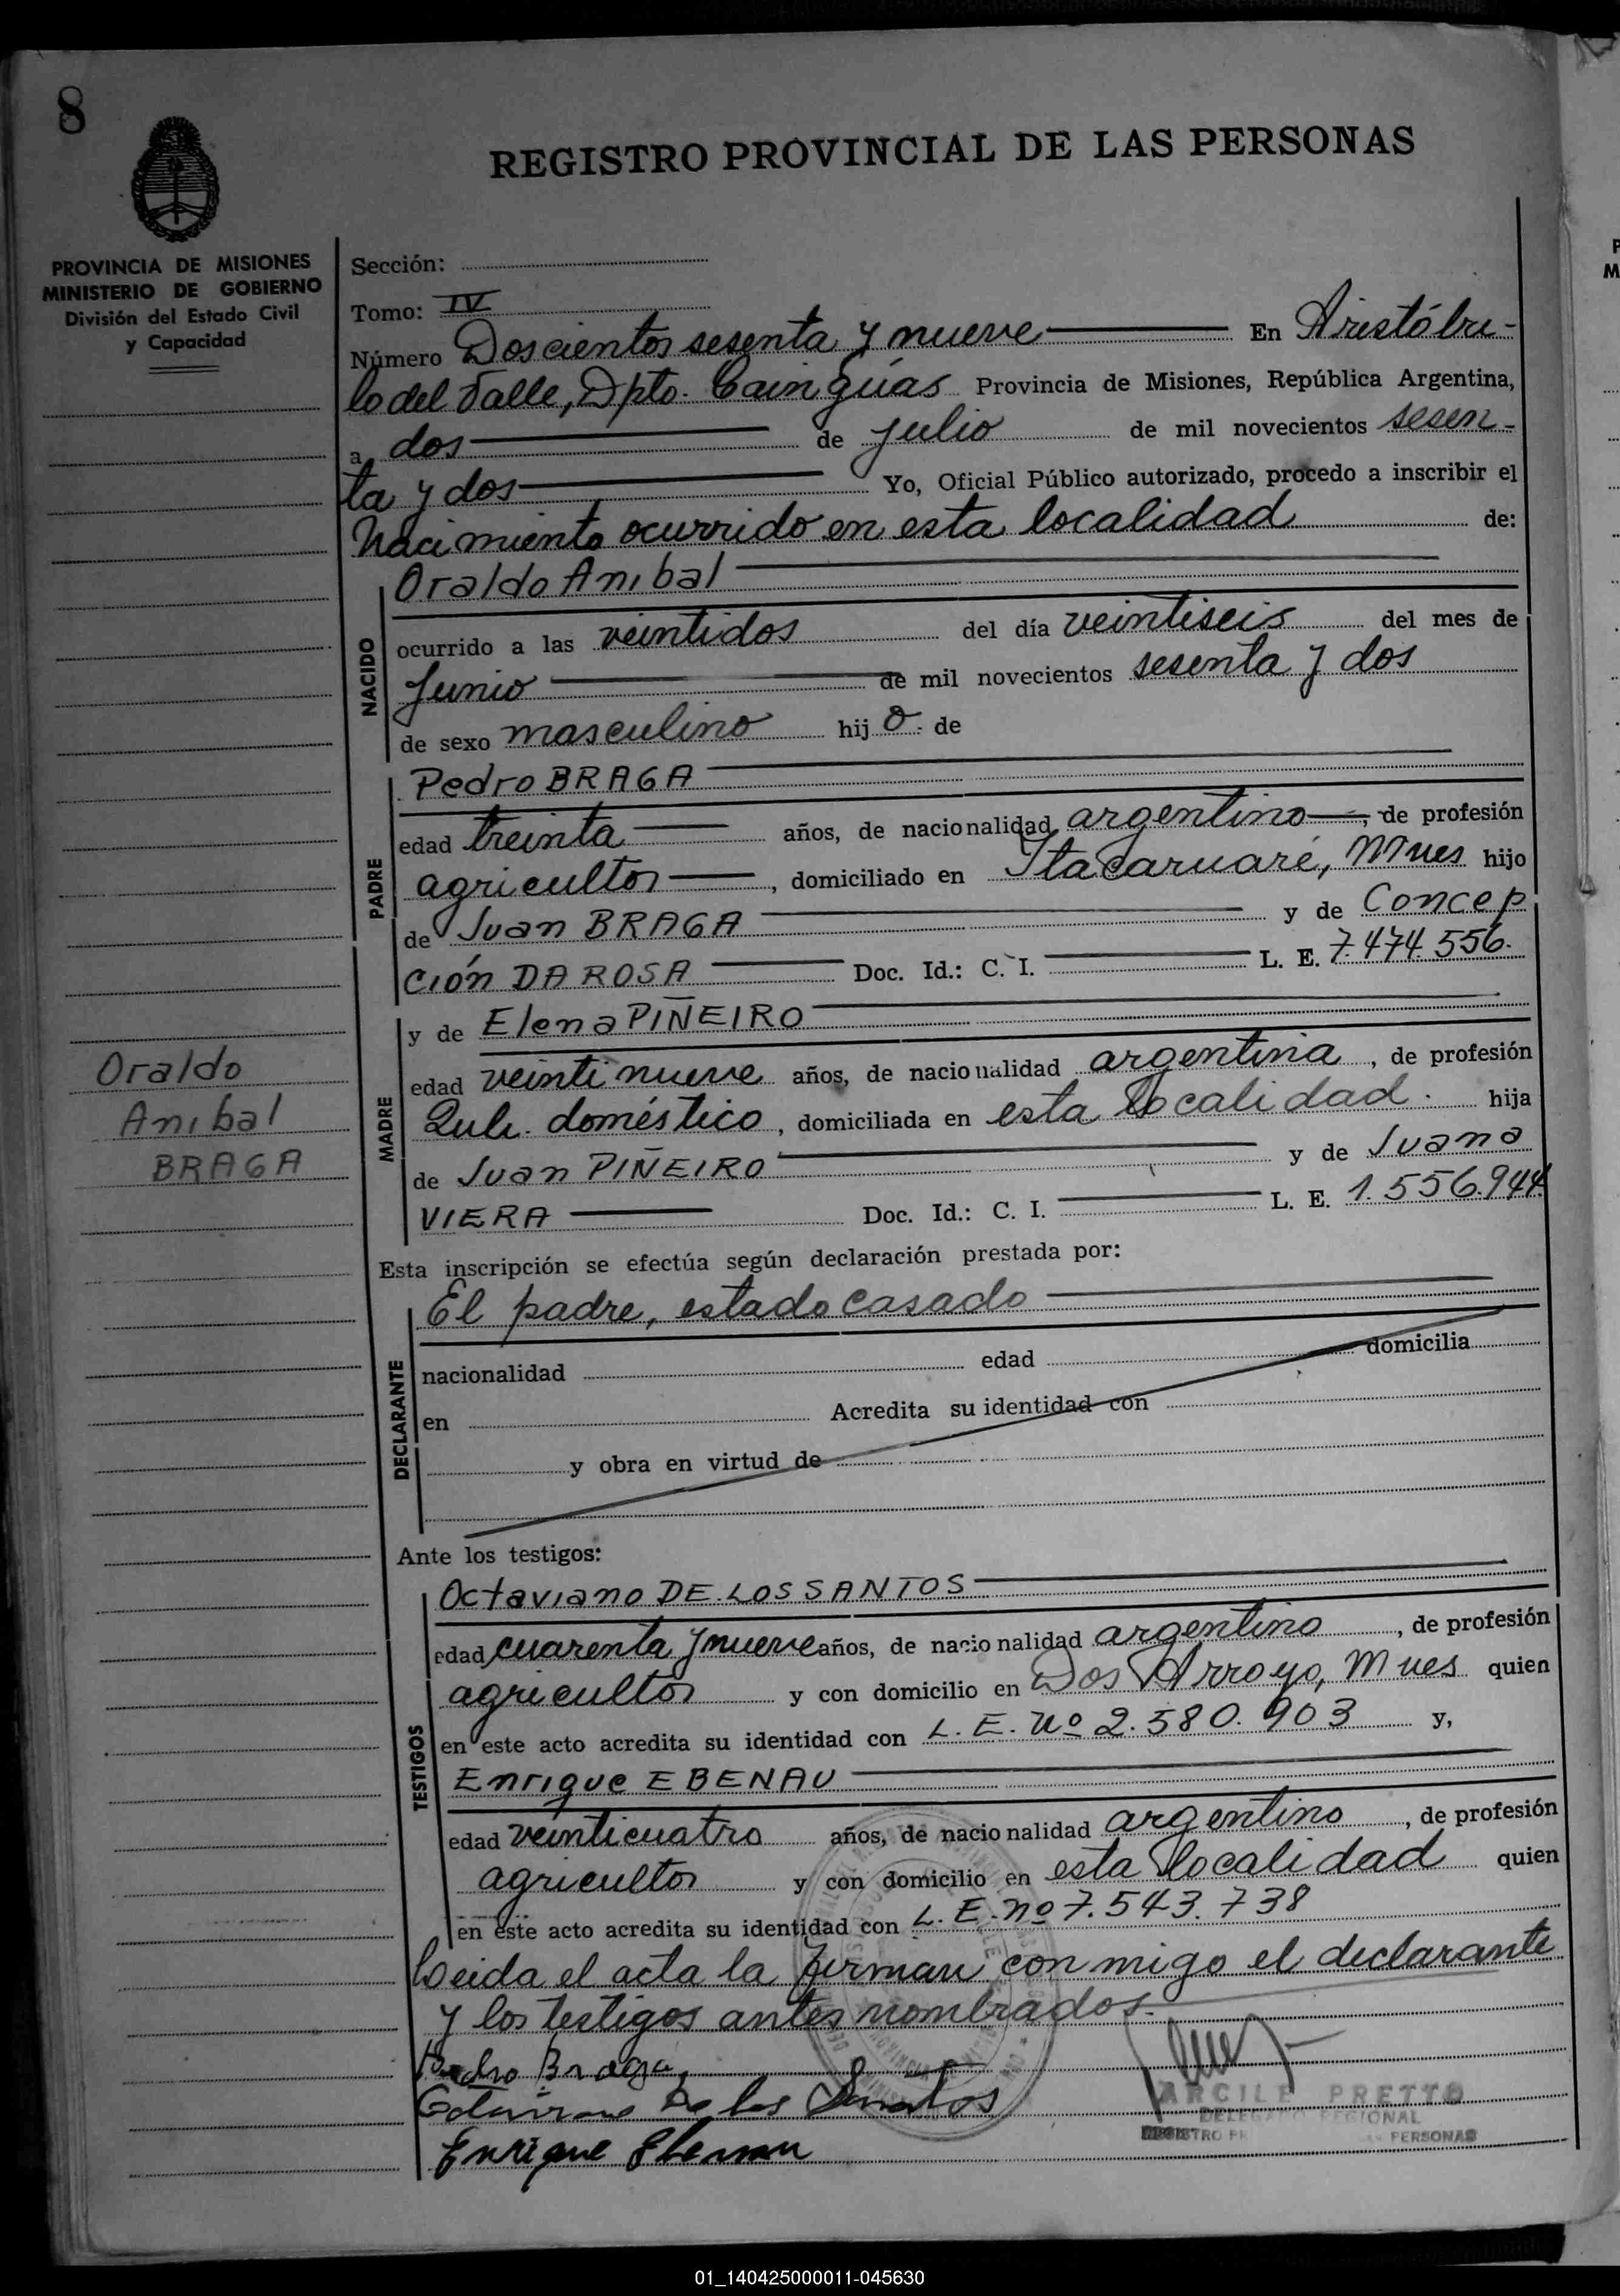 8
REGISTRO PROVINCIAL DE LAS PERSONAS
PROVINCIA DE MISIONES
MINISTERIO DE GOBIERNO
División del Estado Civil
y Capacidad
Sección:
Tomo: IV
Número Doscientos sesenta y nueve En Aristóbu-
lo del Valle, Dpto. Cainguas Provincia de Misiones, República Argentina,
a dos de julio de mil novecientos sesen-
ta y dos Yo, Oficial Público autorizado, procedo a inscribir el
Nacimiento ocurrido en esta localidad de:
NACIDO
Oraldo Anibal
ocurrido a las veintidos del día veintiseis del mes de
Junio de mil novecientos sesenta y dos
de sexo masculino hij o de
PADRE
Pedro BRAGA
edad treinta años, de nacionalidad argentino, de profesión
agricultor, domiciliado en Itacaruaré, Mnes hijo
de Juan BRAGA y de Concep
ción DA ROSA Doc. Id.: C. I. L. E. 7.474.556.
MADRE
y de Elena PIÑEIRO
edad veintinueve años, de nacionalidad argentina, de profesión
Queh. doméstico, domiciliada en esta localidad. hija
de Juan PIÑEIRO y de Juana
VIERA Doc. Id.: C. I. L. E. 1.556.944
Oraldo
Anibal
BRAGA
Esta inscripción se efectúa según declaración prestada por:
DECLARANTE
El padre, estado casado
nacionalidad edad domicilia
en Acredita su identidad con
y obra en virtud de
Ante los testigos:
TESTIGOS
Octaviano DE LOS SANTOS
edad cuarenta y nueve años, de nacionalidad argentino, de profesión
agricultor y con domicilio en Dos Arroyo, Mnes quien
en este acto acredita su identidad con L. E. Nº 2.580.903 y,
Enrique EBENAU
edad veinticuatro años, de nacionalidad argentino, de profesión
agricultor y con domicilio en esta localidad quien
en este acto acredita su identidad con L. E. nº 7.543.738
Leida el acta la firman conmigo el declarante
y los testigos antes nombrados.
Pedro Braga
De los Santos
Enrique Ebenau
ARCILE PRETTO
DELEGADO REGIONAL
REGISTRO PR PERSONAS
01_140425000011-045630